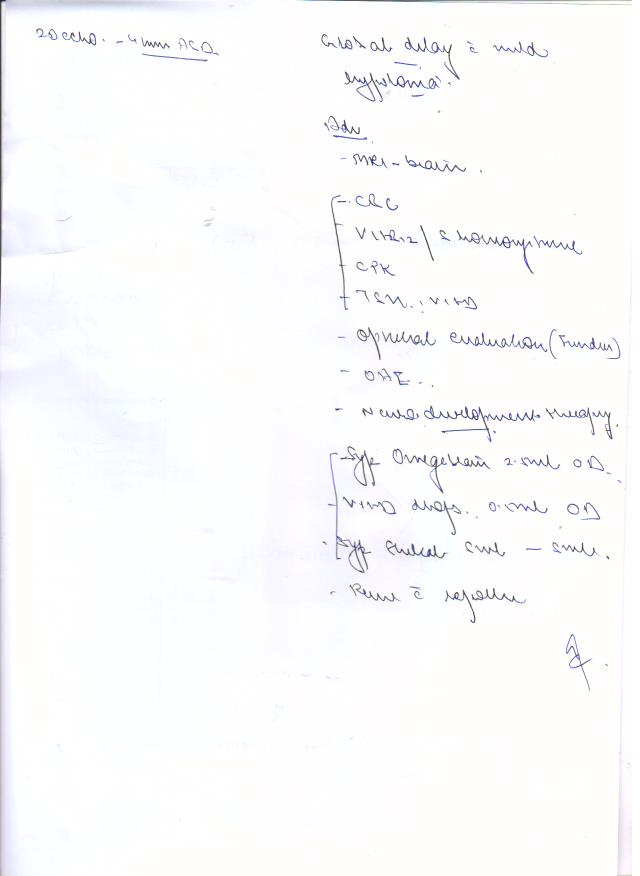 2D echo. - 4 mm ASD
Global delay c̄ mild
hypotonia.
Adv
- MRI - brain.
- CBC
- Vit B12 / S homocysteine
- CPK
- TSH, Vit D
- Opthal evaluation (Fundus)
- OAE..
- Neuro development therapy.
- Syp 2.5ml OD
- Vit D drops. 0.5ml OD
- Syp 5ml - 5ml.
- Rev c̄ reports